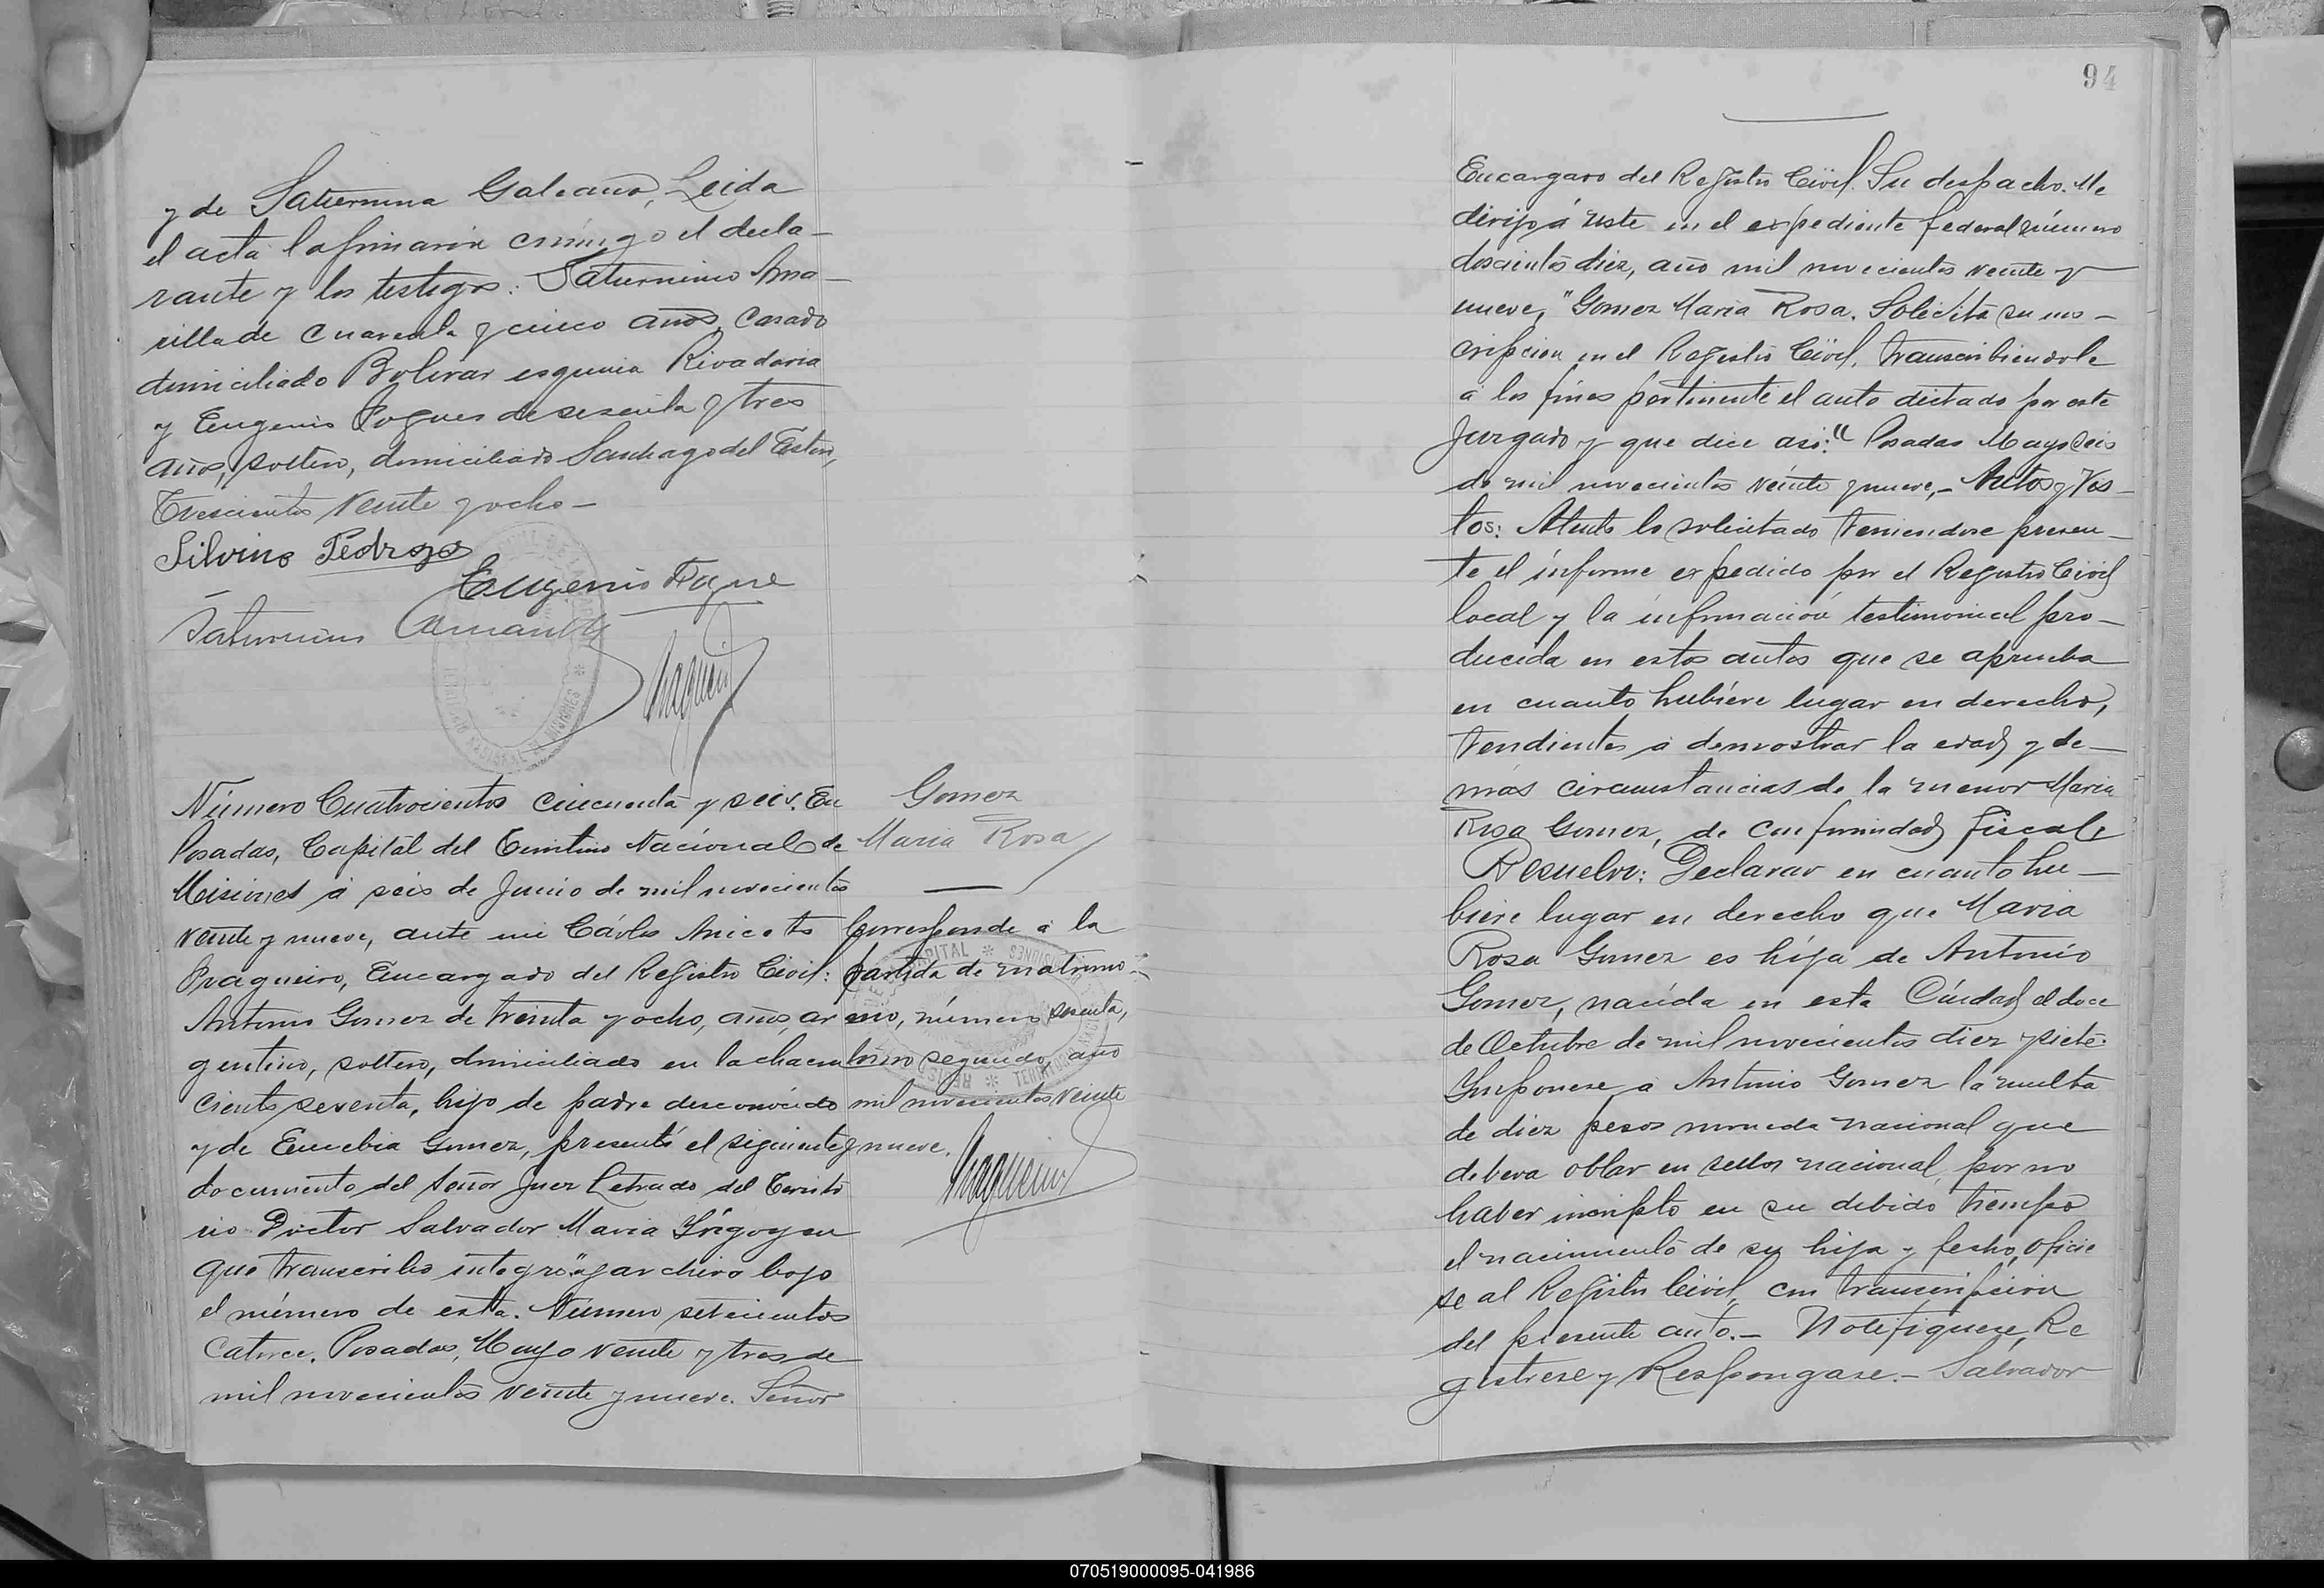 y de Saturnina Galeano, Leida
el acta la firmaron conmigo el decla-
rante y los testigos: Saturnino Ama-
rilla de cuarenta y cinco años, casado
domiciliado Bolivar esquina Rivadavia
y Eugenio Fogues de sesenta y tres
años, soltero, domiciliado Santiago del Estero,
Trescientos veinte y ocho-
Silvino Pedrozo
Eugenio
Saturnino
Número Cuatrocientos cincuenta y seis. En
Posadas, Capital del Territorio Nacional de
Misiones á seis de Junio de mil novecientos
veinte y nueve, ante mi Cárlos Aniceto
Encargado del Registro Civil:
Antonio Gomez de treinta y ocho, años, ar
gentino, soltero, domiciliado en la chacra
ciento sesenta, hijo de padre desconocido
y de Eusebia Gomez, presentó el siguiente
documento del Señor Juez Letrado del Territo
rio Doctor Salvador Maria Irigoyen
que transcribo integro" y archivo bajo
el número de esta. Número setecientos
catorce. Posadas, Mayo veinte y tres de
mil novecientos veinte y nueve. Señor
Gomez
Maria Rosa
Corresponde á la
partida de matrimo-
nio, número sesenta,
tomo segundo, año
mil novecientos veinte
y nueve.
94
Encargaro del Registro Civil. Su despacho. Me
dirijo á uste en el expediente federal número
doscientos diez, año mil novecientos veinte y
nueve, "Gomez Maria Rosa. Solicita su ins-
cripcion en el Registro Civil, transcribiendole
á los fines pertinente el auto dictado por este
Juzgado y que dice asi:" Posadas Mayo seis
de mil novecientos veinte y nueve,- Autos y Vis-
tos: Atento lo solicitado teniendose presen-
te el informe expedido por el Registro Civil
local y la información testimonial pro-
ducida en estos autos que se aprueba
en cuanto hubiere lugar en derecho,
tendientes á demostrar la edad y de-
más circunstancias de la menor Maria
Rosa Gomez, de conformidad fiscal
Resuelvo: Declarar en cuanto hu-
biere lugar en derecho que Maria
Rosa Gomez es hija de Antonio
Gomez, nacida en esta Ciudad el doce
de Octubre de mil novecientos diez y siete.
Imponese a Antonio Gomez la multa
de diez pesos moneda nacional que
debera oblar en sellos nacional, por no
haber inscripto en su debido tiempo
el nacimiento de su hija y fecho, oficie
se al Registro Civil, con transcripción
del presente auto.- Notifiquese, Re
gistrese y Respongase.- Salvador
070519000095-041986